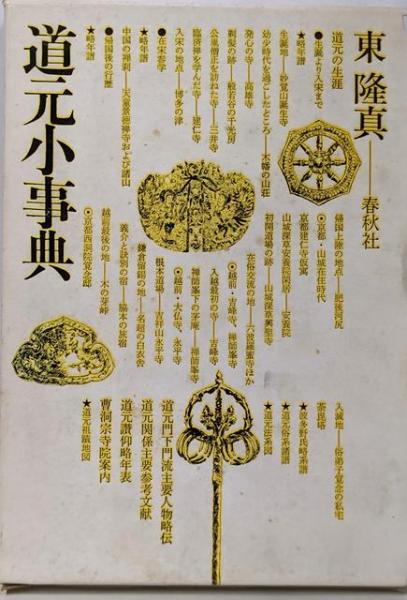 東 隆真――春秋社
道元小事典
道元の生涯
●生誕より入宋まで
★略年譜
生誕地――妙覚山誕生寺
幼少時代を過ごしたところ――木幡の山荘
発心の寺――高雄寺
剃髪の跡――般若谷の千光房
公胤僧正を訪ねた寺――三井寺
臨済禅を学んだ寺――建仁寺
入宋の地点――博多の津
●在宋参学
★略年譜
中国の禅刹――天童景徳禅寺および諸山
●帰国後の行歴
★略年譜
帰国上陸の地点――肥後河尻
◎京都・山城在住時代
京都建仁寺仮寓
山城深草安養院閑居――安養院
初開道場の跡――山城深草興聖寺
在俗交流の地――六波羅蜜寺ほか
◎越前・吉峰寺、禅師峯寺
入越最初の寺――吉峰寺
禅師峯下の茅庵――禅師峯寺
◎越前・大仏寺、永平寺
根本道場――吉祥山永平寺
鎌倉留錫の地――名越の白衣舎
義介と訣別の宿――脇本の旅宿
越前最後の地――木の芽峠
◎京都西洞院覚念邸
入滅地――俗弟子覚念の私宅
荼毘塔
★波多野氏略系譜
★道元俗系諸譜
★道元法系図
道元門下門流主要人物略伝
道元関係主要参考文献
道元讃仰略年表
曹洞宗寺院案内
★道元旧蹟地図